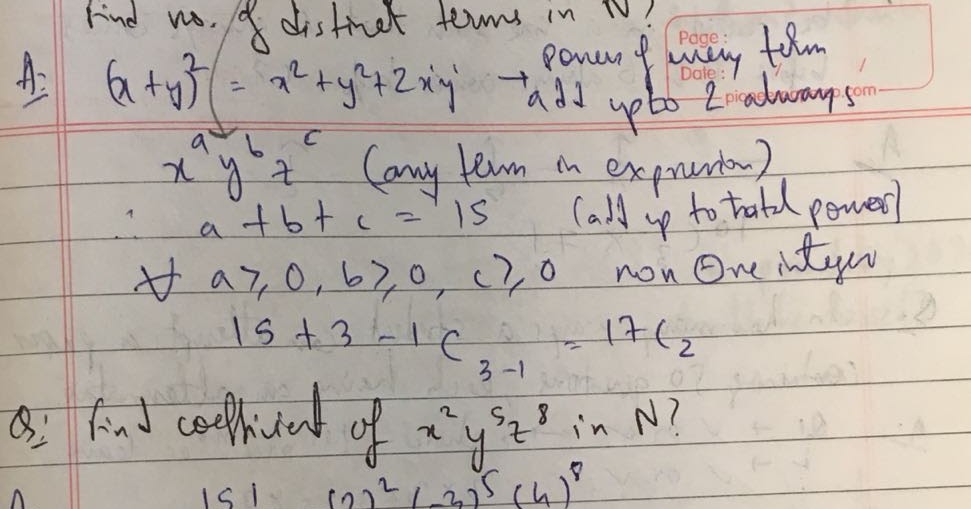 Find no. of distinct terms in N?
Page:
Date:
A: (x+y)² = x² + y² + 2x¹y¹ → powers of every term
add upto 2 always
xᵃ yᵇ zᶜ (any term in expression)
∴ a + b + c = 15 (add up to total power)
∀ a ≥ 0, b ≥ 0, c ≥ 0 non ⊖ve integer
15 + 3 - 1 C 3-1 = 17C₂
Q: Find coefficient of x² y⁵ z⁸ in N?
15! (2)² (-3)⁵ (4)⁸